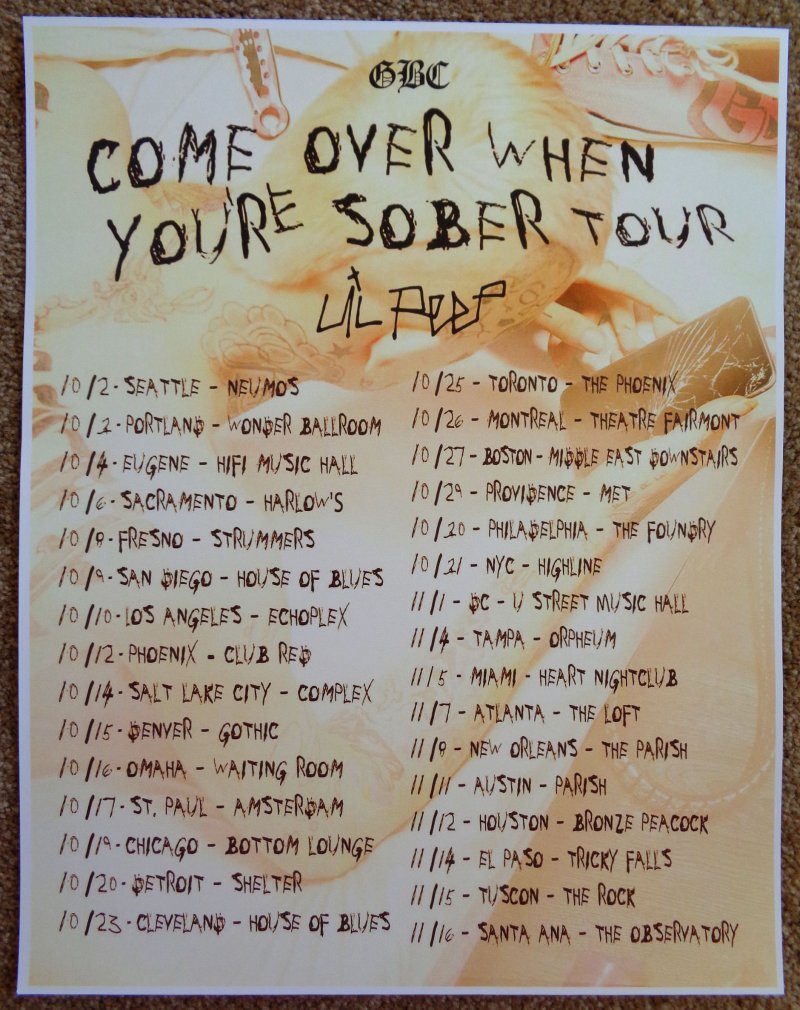 GBC
COME OVER WHEN
YOU'RE SOBER TOUR
LIL PEEP
10/2 - SEATTLE - NEUMOS
10/2 - PORTLAND - WONDER BALLROOM
10/4 - EUGENE - HIFI MUSIC HALL
10/6 - SACRAMENTO - HARLOW'S
10/8 - FRESNO - STRUMMERS
10/9 - SAN DIEGO - HOUSE OF BLUES
10/10 - LOS ANGELES - ECHOPLEX
10/12 - PHOENIX - CLUB RED
10/14 - SALT LAKE CITY - COMPLEX
10/15 - DENVER - GOTHIC
10/16 - OMAHA - WAITING ROOM
10/17 - ST. PAUL - AMSTERDAM
10/19 - CHICAGO - BOTTOM LOUNGE
10/20 - DETROIT - SHELTER
10/23 - CLEVELAND - HOUSE OF BLUES
10/25 - TORONTO - THE PHOENIX
10/26 - MONTREAL - THEATRE FAIRMONT
10/27 - BOSTON - MIDDLE EAST DOWNSTAIRS
10/29 - PROVIDENCE - MET
10/20 - PHILADELPHIA - THE FOUNDRY
10/21 - NYC - HIGHLINE
11/1 - DC - U STREET MUSIC HALL
11/4 - TAMPA - ORPHEUM
11/5 - MIAMI - HEART NIGHTCLUB
11/7 - ATLANTA - THE LOFT
11/8 - NEW ORLEANS - THE PARISH
11/11 - AUSTIN - PARISH
11/12 - HOUSTON - BRONZE PEACOCK
11/14 - EL PASO - TRICKY FALLS
11/15 - TUSCON - THE ROCK
11/16 - SANTA ANA - THE OBSERVATORY